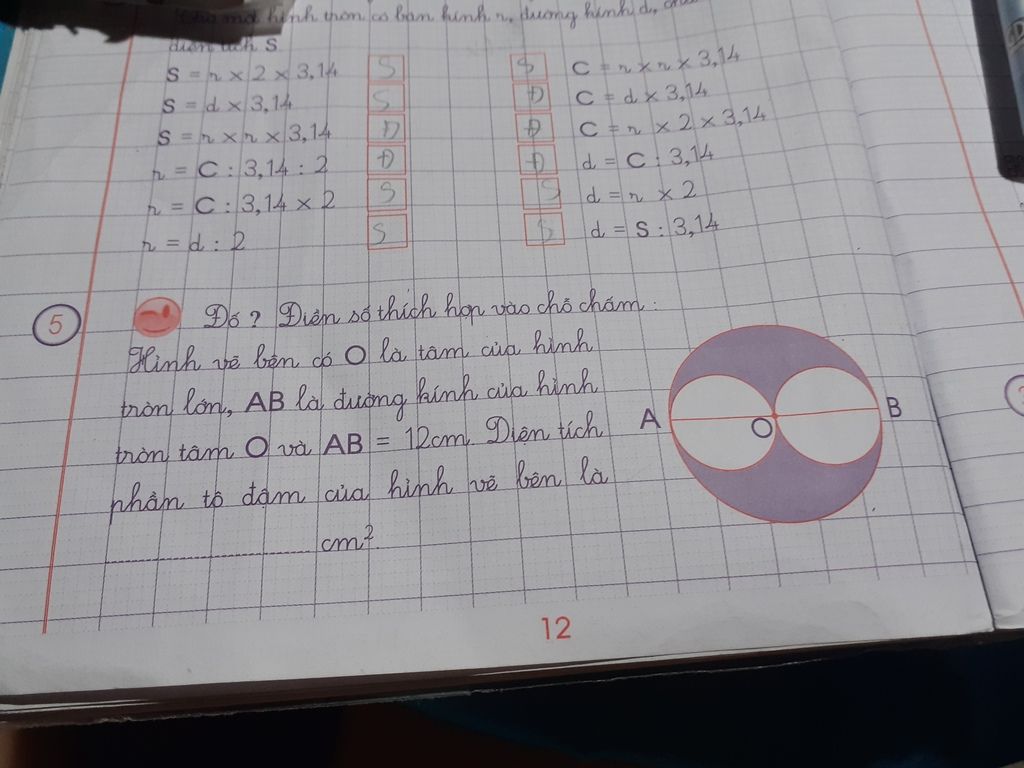 hình tròn có bán kính r, đường kính d,
diện tích S
S = r x 2 x 3,14 S S C = r x r x 3,14
S = d x 3,14 S Đ C = d x 3,14
S = r x r x 3,14 Đ Đ C = r x 2 x 3,14
r = C : 3,14 : 2 Đ Đ d = C : 3,14
r = C : 3,14 x 2 S S d = r x 2
r = d : 2 S S d = S : 3,14
5 Đố ? Điền số thích hợp vào chỗ chấm :
Hình vẽ bên có O là tâm của hình
tròn lớn, AB là đường kính của hình
tròn tâm O và AB = 12cm. Diện tích
phần tô đậm của hình vẽ bên là
cm²
A O B
12